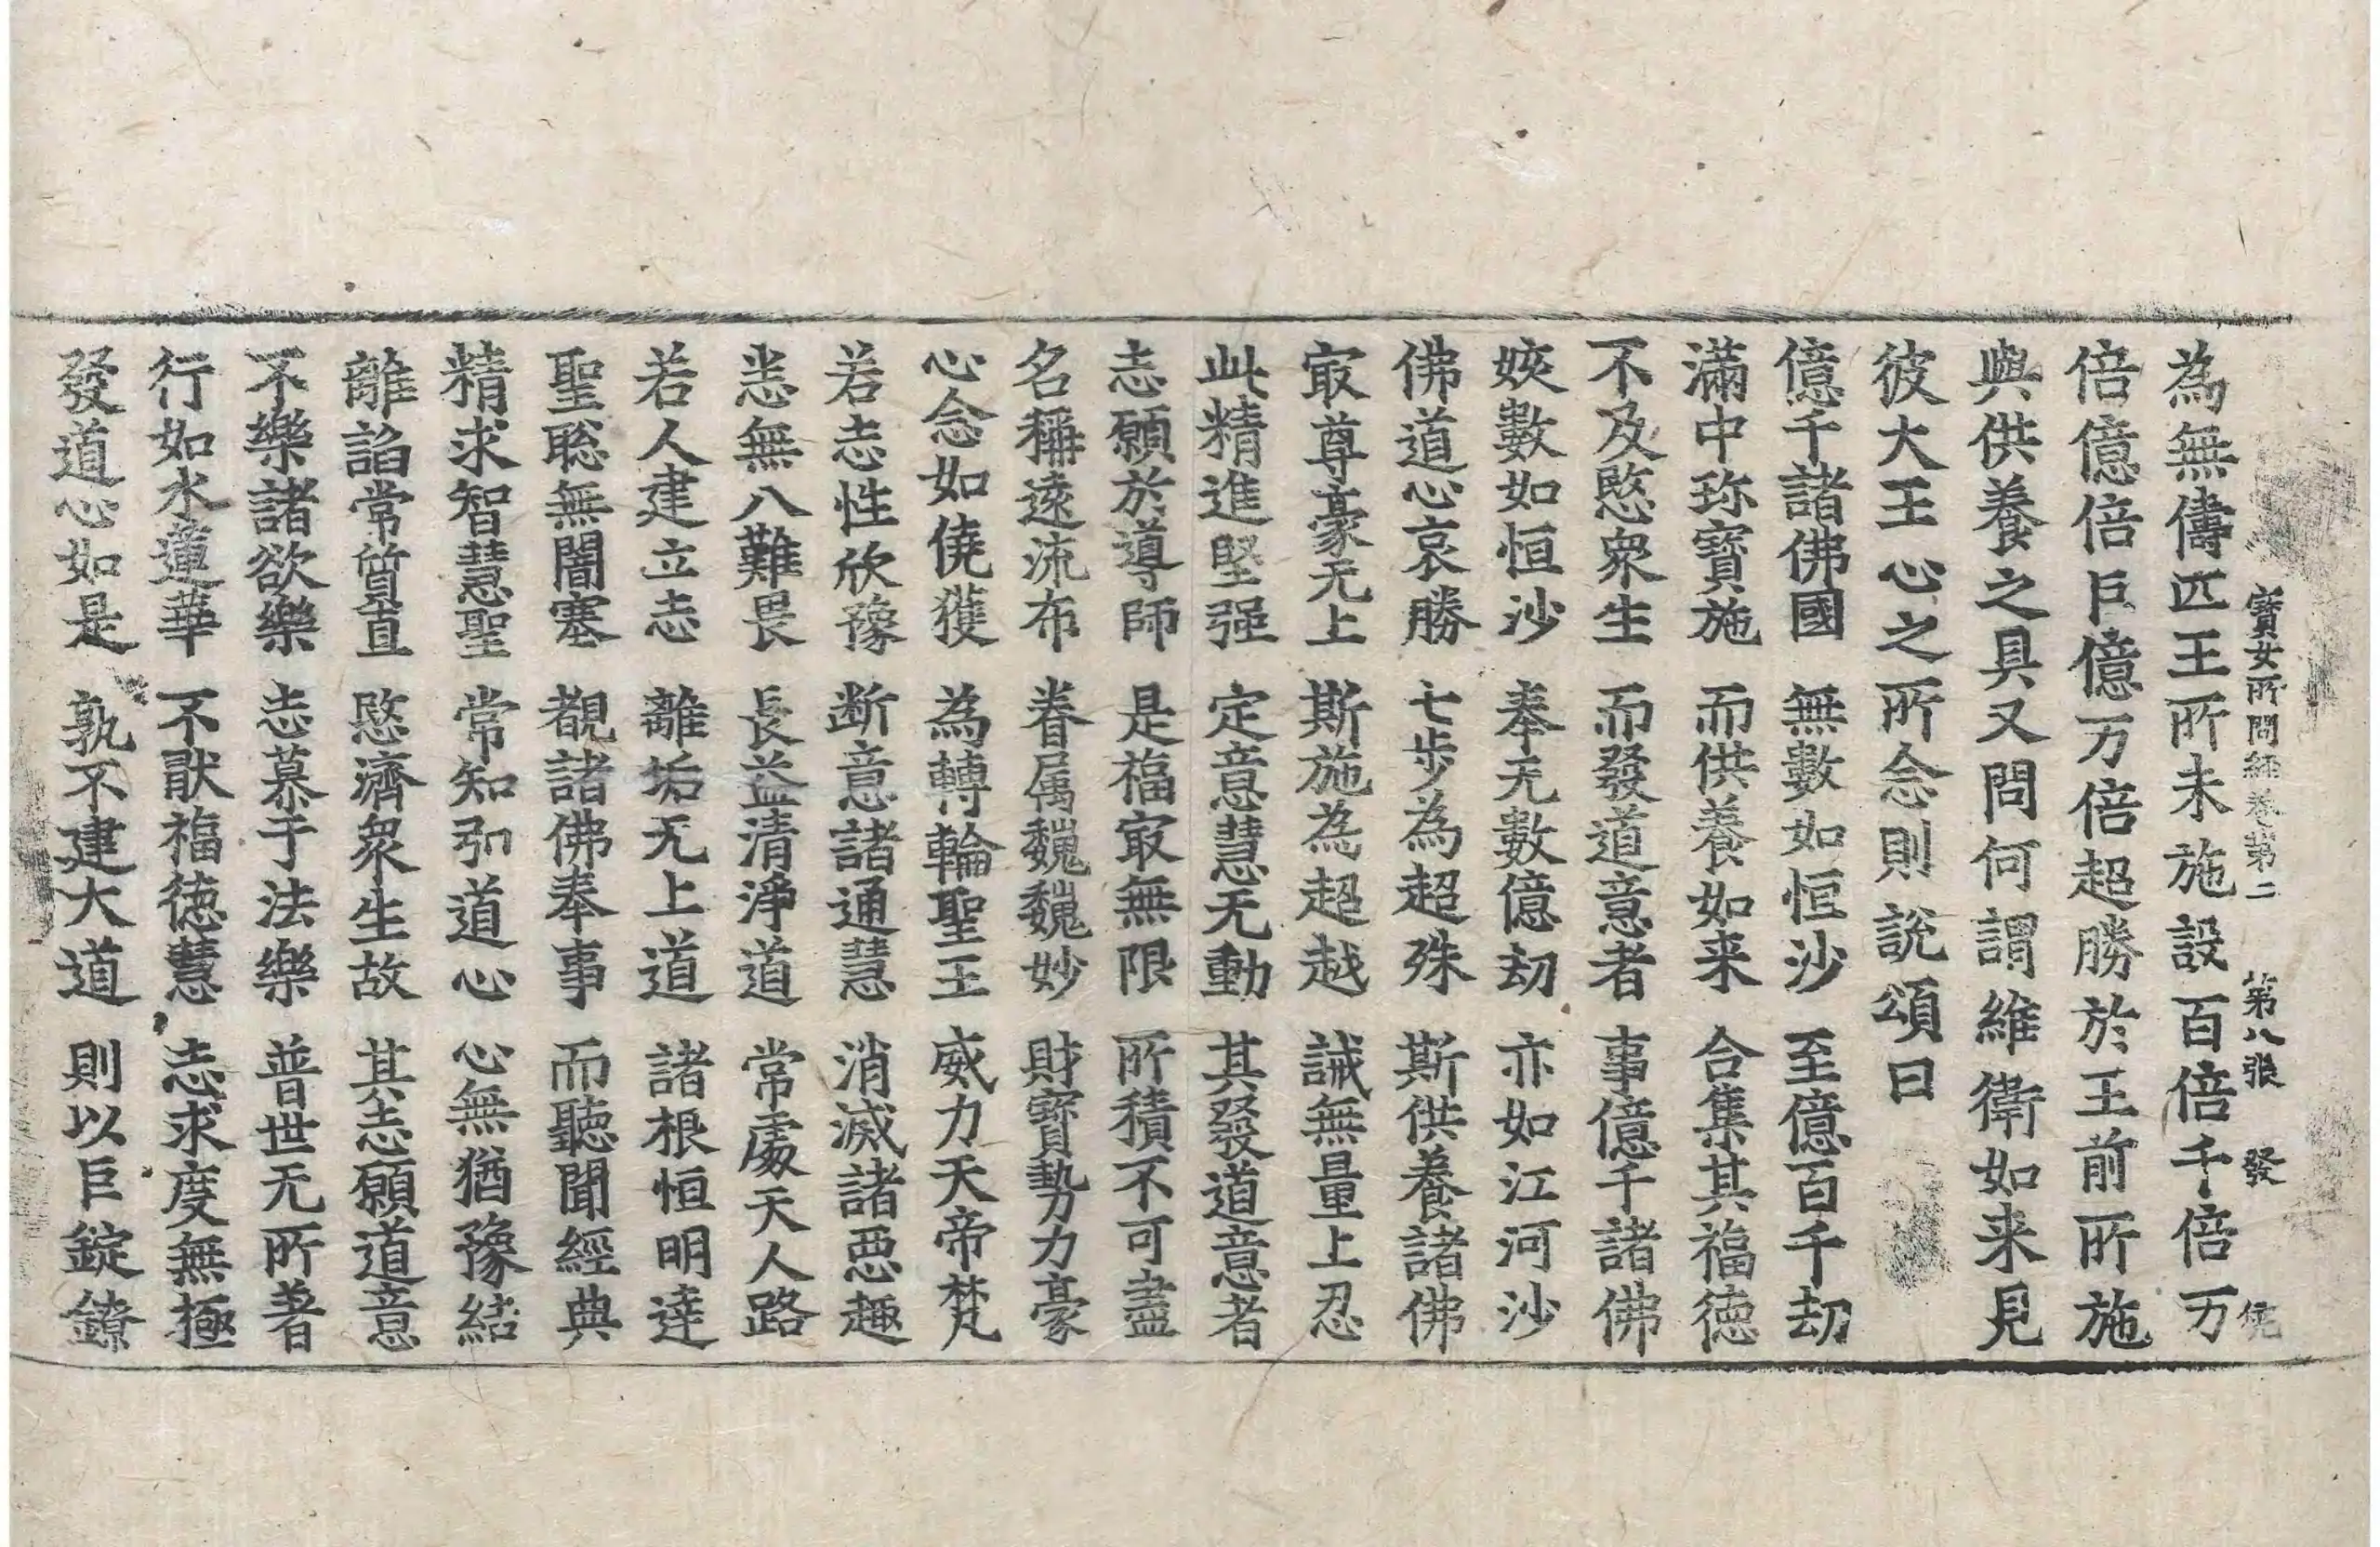 寶女所問經卷第二 第八張 發
為無儔匹王所未施設百倍千倍万
倍億倍巨億万倍超勝於王前所施
與供養之具又問何謂維衛如来見
彼大王心之所念則說頌曰
億千諸佛國 無數如恒沙 至億百千劫
滿中珎寶施 而供養如来 合集其福德
不及愍衆生 而發道意者 事億千諸佛
姟數如恒沙 奉无數億劫 亦如江河沙
佛道心哀勝 七步為超殊 斯供養諸佛
㝡尊豪无上 斯施為超越 誡無量上忍
此精進堅强 定意慧无動 其發道意者
志願於導師 是福㝡無限 所積不可盡
名稱遠流布 眷属巍巍妙 財寶勢力豪
心念如僥獲 為轉輪聖王 威力天帝梵
若志性欣豫 断意諸通慧 消滅諸惡趣
恙無八難畏 長益清淨道 常處天人路
若人建立志 離垢无上道 諸根恒明達
聖聡無闇塞 覩諸佛奉事 而聽聞經典
精求智慧聖 常知弘道心 心無猶豫結
離諂常質直 愍濟衆生故 其志願道意
不樂諸欲樂 志慕于法樂 普世无所著
行如水蓮華 不猒福德慧 志求度無極
發道心如是 孰不建大道 則以巨錠鐐